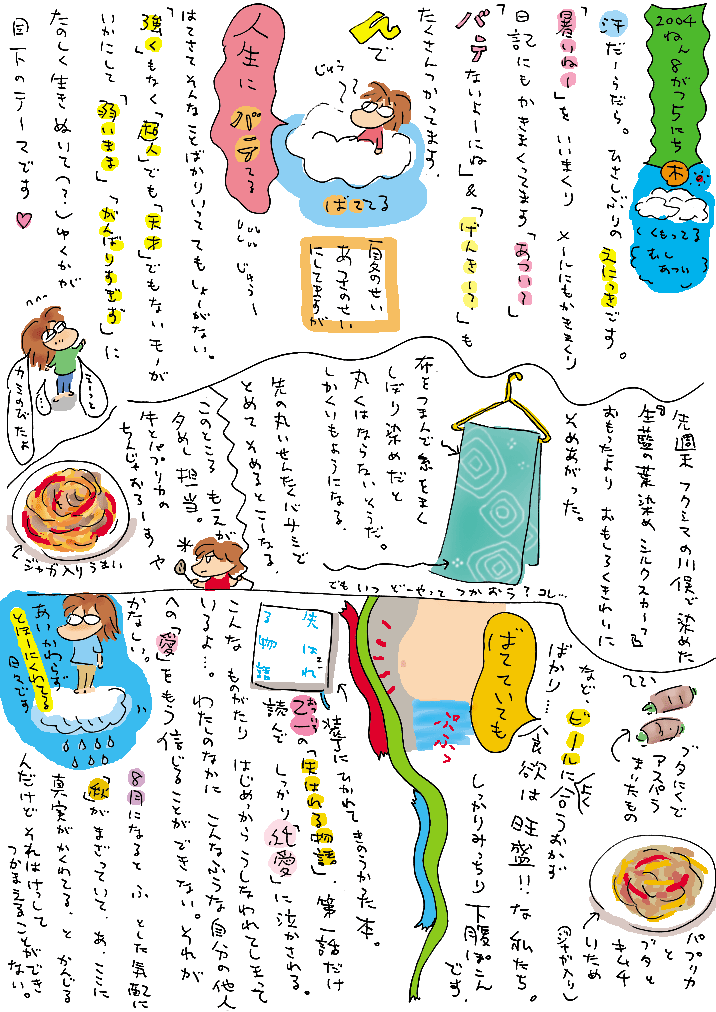 2004
ねん8がつ5にち
木
くもってる
むし
あつい
汗だーらだら。ひさしぶりのえにっきです。
「暑いねー」をいいまくり メールにもかきまくり
日記にもかきまくってます「あつい?」
バテないよーにね」&「げんきー?」も
たくさんつかってます。
んで
じゅう
ばててる
夏のせい
あつさのせい
にしてますが
人生に バテてる
じゅうー
はてさてそんなことばかりいっててもしょーがない。
「強くもなく「超人」でも「天才」でもないモノが
いかにして「弱いまま」「がんばりすぎず」に
たのしく生きぬいてく?しゅくかが
目下のテーマです
えーっと
カミのびたよ
先週末 フクシマの川俣で染めた
生藍の葉染め シルクスカーフ
おもうたより おもしろくきれいに
そめあがった。
布をつまんで糸をまく
しぼり染めだと
丸くはならないそうだ。
しかくいもようになる。
先の丸いせんたくバサミで
とめてそめるとこーなる。
でもいつどーやってつかおう?コレ…
このところ もえが
夕めし担当。
牛とパプリカの
ちんじゃおろーすや
ジャガ入りうまい
ブタにくで
アスパラ
まいたもの
パプリカ
と
ブタと
キムチ
いため
(ジャガ入り)
など、ビールによく合うおかず
ばかり…食欲は旺盛!!な私たち。
しっかりみっちり下腹ぽこん
です。
ばてていても
ぷぷっ
失はれ
る物語
装丁にひかれてきのうかった本。
乙一の「失はれる物語」、第一話だけ
読んで しっかり「純愛」に泣かされる。
こんな ものがたり はじめっから うしなわれてしまって
いるよ…。わたしのなかに こんなふうな自分の他人
への「愛」をもう信じることができない。それが
かなしい。
8月になると ふ、とした気配に
「秋」がまざっていて、あ、ここに
真実がかくれてる、と かんじる
んだけど それはけっして
つかまえることができ
ない。
あいかわらず
とほーにくれてる
日々です